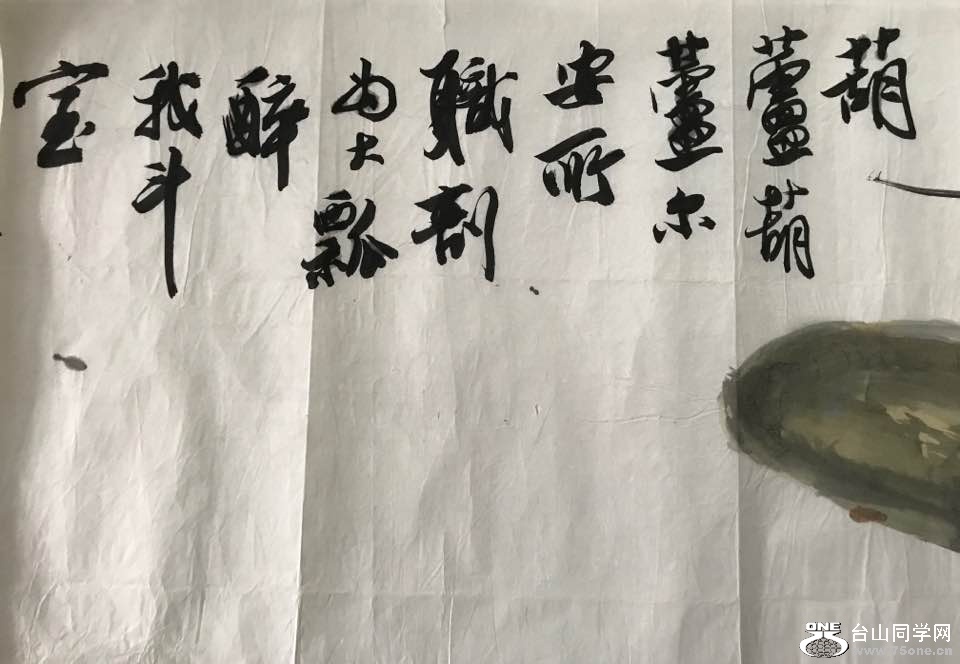 葫
蘆葫
蘆尔
安所
職剖
为大瓢
醉
我斗
室
ONE
台山同学网
www.75one.cn